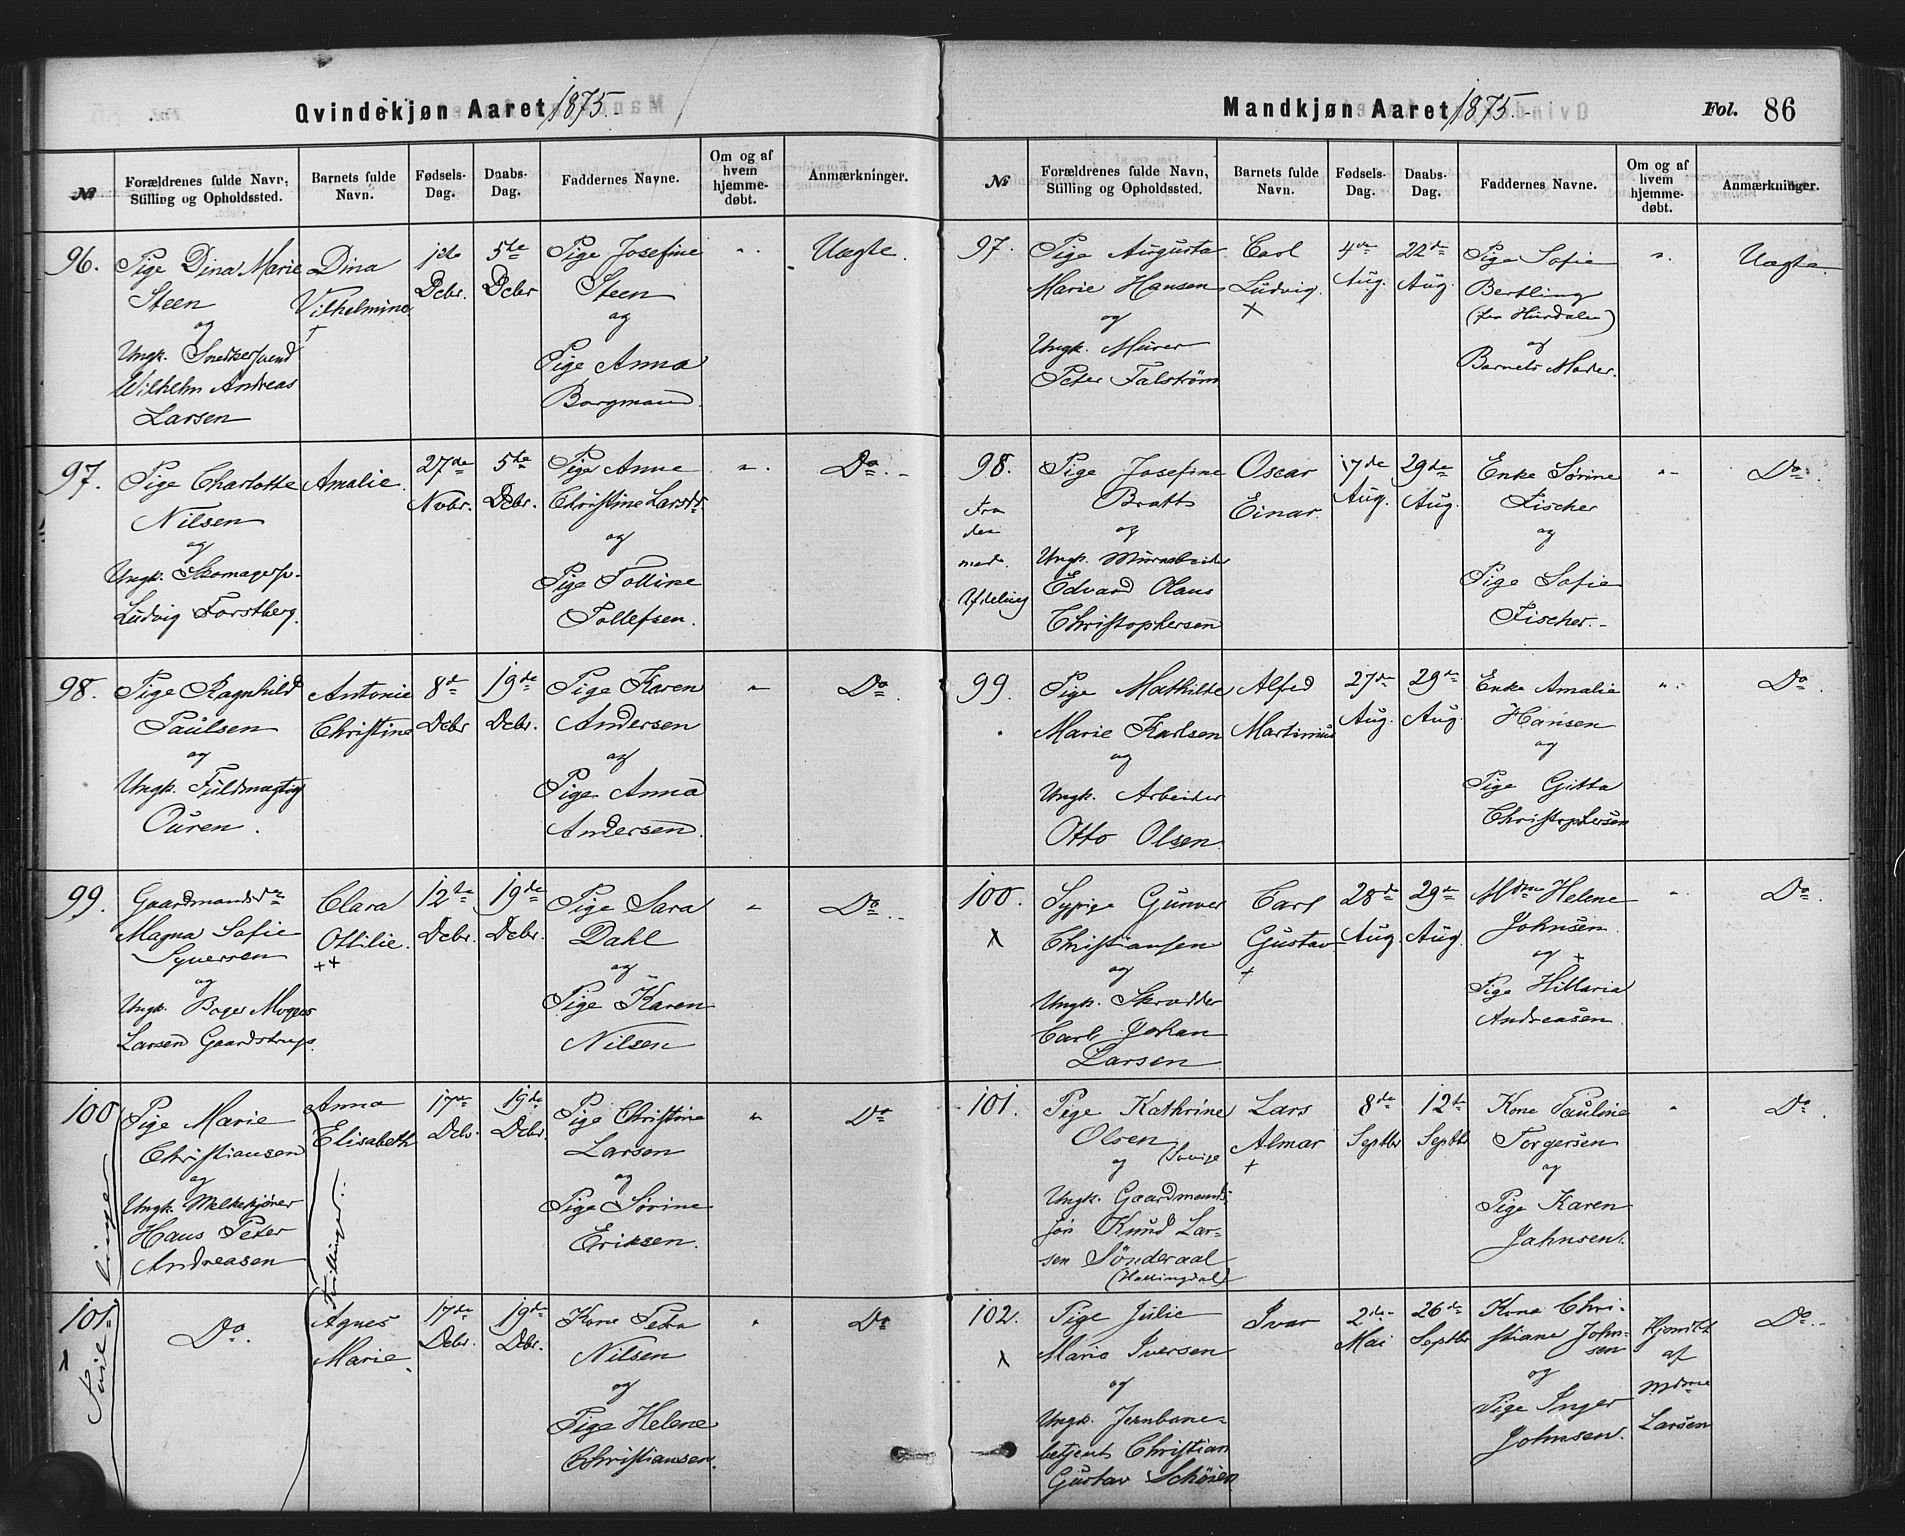 Qvindekjøn Aaret 1875.
№
Forældrenes fulde Navn,
Stilling og Opholdssted.
Barnets fulde
Navn.
Fødsels-
Dag.
Daabs-
Dag.
Faddernes Navne.
Om og af
hvem
hjemme-
døbt.
Anmærkninger.
96.
Pige Dina Marie
Steen
og
Ungk. Snedkersvend
Wilhelm Andreas
Larsen
Dina
Vilhelmine
1ste
Dcbr.
5te
Dcbr
Pige Josefine
Steen
og
Pige Anna
Borgmand.
Uægte.
97.
Pige Charlotte
Nilsen
og
Ungk. Skomagersv.
Ludvig Forstberg.
Amalie.
27de
Novbr.
5te
Dcbr.
Pige Anne
Christine Larsdr
og
Pige Tolline
Tollefsen.
Do.
98.
Pige Ragnhild
Paulsen
og
Ungk. Fuldmægtig
Ouren.
Antonie
Christine
8de
Dcbr
19de
Dcbr.
Pige Karen
Andersen
og
Pige Anna
Andersen.
Do.
99.
Gaardmandsda
Magna Sofie
Syversen
og
Ungk. Bager Mogens
Larsen Gaardstrup.
Clara
Ottilie.
++
12te
Dcbr.
19de
Dcbr.
Pige Sara
Dahl
og
Pige Karen
Nilsen
Do.
100
Pige Marie
Christiansen
og
Ungk. Melkekjører
Hans Peter
Andreasen
Anna
Elisabeth
17de
Dcbr.
19de
Dcbr.
Pige Christine
Larsen
og
Pige Sørine
Eriksen.
Do
Tvillinger
Tvillinger.
101.
Do.
Agnes
Marie.
17de
Dcbr.
19de
Dcbr.
Kone Petra
Nilsen
og
Pige Helene
Christiansen.
Do
Mandkjøn Aaret 1875.
Fol. 86
№
Forældrenes fulde Navn,
Stilling og Opholdssted.
Barnets fulde
Navn.
Fødsels-
Dag.
Daabs-
Dag.
Faddernes Navne.
Om og af
hvem
hjemme-
døbt.
Anmærkninger.
97.
Pige Augusta
Marie Hansen
og
Ungk. Murer
Peter Falstrøm
Carl
Ludvig.
+
4de
Aug.
22de
Aug.
Pige Sofie
Bertling
(fra Hurdalen)
og
Barnets Moder.
Uægte.
98.
Fra
den
med.
Afdeling
Pige Josefine
Bratt
og
Ungk. Murarbeider
Edvard Olaus
Christophersen
Oscar
Einar.
17de
Aug.
29de
Aug.
Enke Sørine
Fischer
og
Pige Sofie
Fischer.
Do.
99.
Pige Mathilde
Marie Karlsen
og
Ungk. Arbeider
Otto Olsen.
Alfred
Martinius
27de
Aug.
29de
Aug.
Enke Amalie
Hansen
og
Pige Gitta
Christophersen
Do.
100.
x
Sypige Gunver
Christiansen
og
Ungk. Skrædder
Carl Johan
Larsen
Carl
Gustav
+
28de
Aug.
29de
Aug.
Mdme Helene
Johnsen
og +
Pige Hillaria
Andreasen
Do.
101.
Pige Kathrine
Olsen
og
Ungk. Gaardmands-
søn Knud Lar-
sen Sønderaal
(Hallingdal)
Lars
Almar
+
8de
Septbr
12te
Septbr
Kone Pauline
Torgersen
og
Pige Karen
Jahnsen.
Do.
102.
x
Pige Julie
Marie Iversen
og
Ungk. Jernbane-
betjent Christian
Gustav Schøien
Ivar
2den
Mai
26de
Septbr
Kone Chri-
stiane John-
sen
og
Pige Inger
Johnsen.
Hjmdbt
af
Mdme
Larsen
Do.